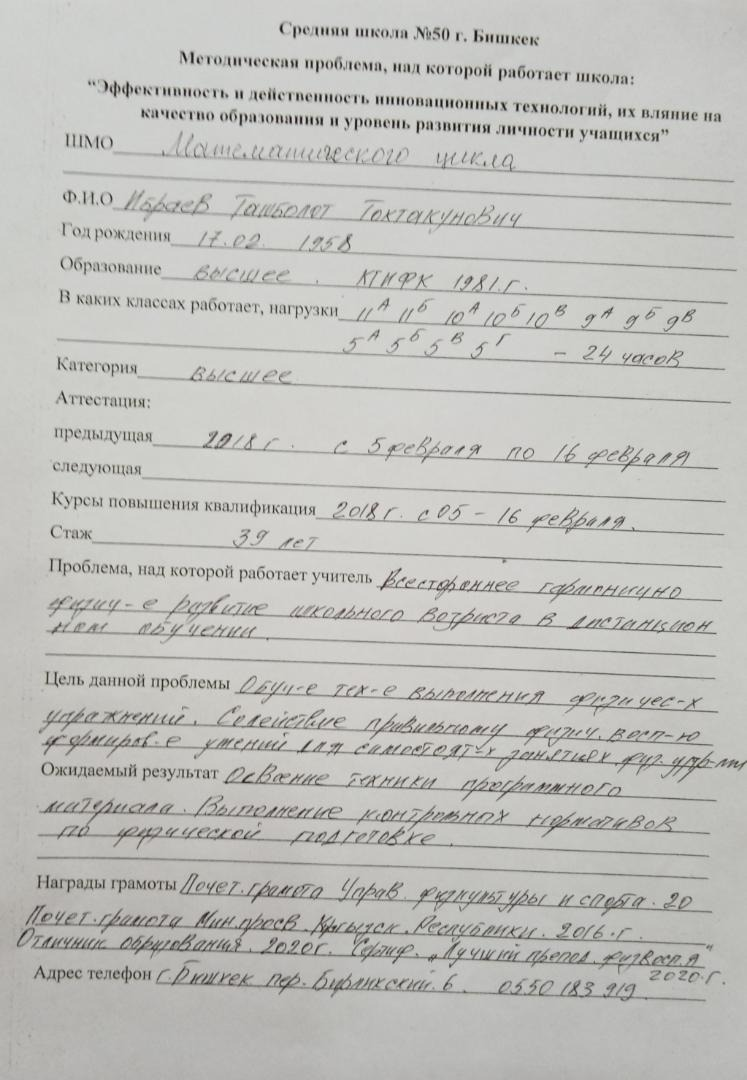 Средняя школа №50 г. Бишкек
Методическая проблема, над которой работает школа:
“Эффективность и действенность инновационных технологий, их вляние на
качество образования и уровень развития личности учащихся”
ШМО Математического цикла
Ф.И.О Ибраев Ташболот Токтакунович
Год рождения 17.02. 1958
Образование высшее. КГИФК 1981.г.
В каких классах работает, нагрузки 11А 11Б 10А 10Б 10В 9А 9Б 9В
5А 5Б 5В 5Г - 24 часов
Категория высшее
Аттестация:
предыдущая 2018г. с 5 февраля по 16 февраля
следующая
Курсы повышения квалификация 2018г. с 05 - 16 февраля.
Стаж 39 лет
Проблема, над которой работает учитель Всестороннее гармонично
физич-е развитие школьного возраста в дистанцион
ном обучении.
Цель данной проблемы Обуч-е тех-е выполнения физичес-х
упражнений. Содействие правильному физич. восп-ю
формиров-е умений для самостоят-х занятиях физ. упр-ми
Ожидаемый результат Освоение техники программного
материала. Выполнение контрольных нормативов
по физической подготовке.
Награды грамоты Почет. грамота Управ. физкультуры и спорта. 20
Почет. грамота Мин. просв. Кыргызск. Республики. 2016.г.
Отличник образования. 2020г. Сертиф. „Лучший препод. физвосп.я”
2020.г.
Адрес телефон г. Бишкек пер. 6. 0550 183 919